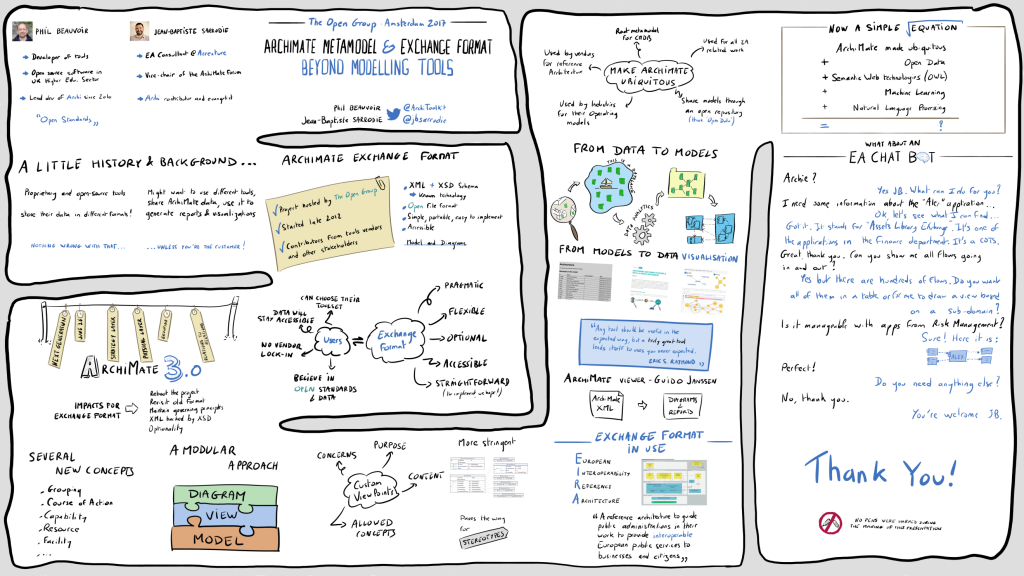 PHIL BEAUVOIR
Developer of tools
Open source software in
UK Higher Edu. Sector
Lead dev of Archi since 2010
"Open Standards"
JEAN-BAPTISTE SARRODIE
EA Consultant @ Accenture
Vice-chair of the ArchiMate Forum
Archi contributor and evangelist
The Open Group - Amsterdam 2017
ARCHIMATE METAMODEL & EXCHANGE FORMAT
BEYOND MODELLING TOOLS
PHIL BEAUVOIR @ArchiToolkit
JEAN-BAPTISTE SARRODIE @jbsarrodie
A LITTLE HISTORY & BACKGROUND...
Proprietary and open-source tools
store their data in different formats!
NOTHING WRONG WITH THAT...
Might want to use different tools,
share ArchiMate data, use it to
generate reports & visualisations
...UNLESS YOU'RE THE CUSTOMER!
ARCHIMATE EXCHANGE FORMAT
Project hosted by The Open Group
Started late 2012
Contributors from tools vendors
and other stakeholders
XML + XSD Schema
Known technology
Open File format
Simple, portable, easy to implement
Accessible
Model and Diagrams
NEXT GENERATION
STRATEGY LAYER
PHYSICAL LAYER
ARCHIMATE 3.0
IMPACTS FOR
EXCHANGE FORMAT
Reboot the project
Revisit old format
Maintain governing principles
XML backed by XSD
Optionality
CAN CHOOSE THEIR
TOOLSET
DATA WILL
STAY ACCESSIBLE
NO VENDOR
LOCK-IN
BELIEVE IN
OPEN STANDARDS
& DATA
Users
Exchange
Format
PRAGMATIC
FLEXIBLE
OPTIONAL
ACCESSIBLE
STRAIGHTFORWARD
(to implement we hope!)
SEVERAL
NEW CONCEPTS
- Grouping
- Course of Action
- Capability
- Resource
- Facility
- ...
A MODULAR
APPROACH
DIAGRAM
VIEW
MODEL
CONCERNS
PURPOSE
CONTENT
Custom
ViewPoints
ALLOWED
CONCEPTS
More stringent
Paves the way
for
STEREOTYPES
Root metamodel
for CMDB
Used for all EA
related work
Used by vendors
for reference
Architecture
MAKE ARCHIMATE
UBIQUITOUS
Used by Industries
for their Operating
models
Share models through
an open repository
(thus Open Data)
FROM DATA TO MODELS
DATA ANALYTICS
FROM MODELS TO DATA VISUALISATION
"Any tool should be useful in the
expected way, but a truly great tool
lends itself to uses you never expected."
ERIC S. RAYMOND
ARCHIMATE VIEWER - GUIDO JANSSEN
ArchiMate
XML
DIAGRAMS
&
REPORTS
EXCHANGE FORMAT
IN USE
EUROPEAN
INTEROPERABILITY
REFERENCE
ARCHITECTURE
"A reference architecture to guide
public administrations in their
work to provide interoperable
European public services to
businesses and citizens"
NOW A SIMPLE EQUATION
ArchiMate made ubiquitous
+ Open Data
+ Semantic Web technologies (OWL)
+ Machine Learning
+ Natural Language Processing
= ?
WHAT ABOUT AN
EA CHAT BOT
Archie?
Yes JB. What can I do for you?
I need some information about the "Alex" application...
Ok, let's see what I can find...
Got it. It stands for "Assets Library Exchange". It's one of
the applications in the Finance department. It's a COTS.
Great thank you. Can you show me all flows going
in and out?
Yes but there are hundreds of flows. Do you want
all of them in a table or for me to draw a view based
on a sub-domain?
Is it manageable with apps from Risk Management?
Sure! Here it is:
ALEX
Perfect!
Do you need anything else?
No, thank you.
You're welcome JB.
Thank You!
NO PENS WERE HARMED DURING
THE MAKING OF THIS PRESENTATION